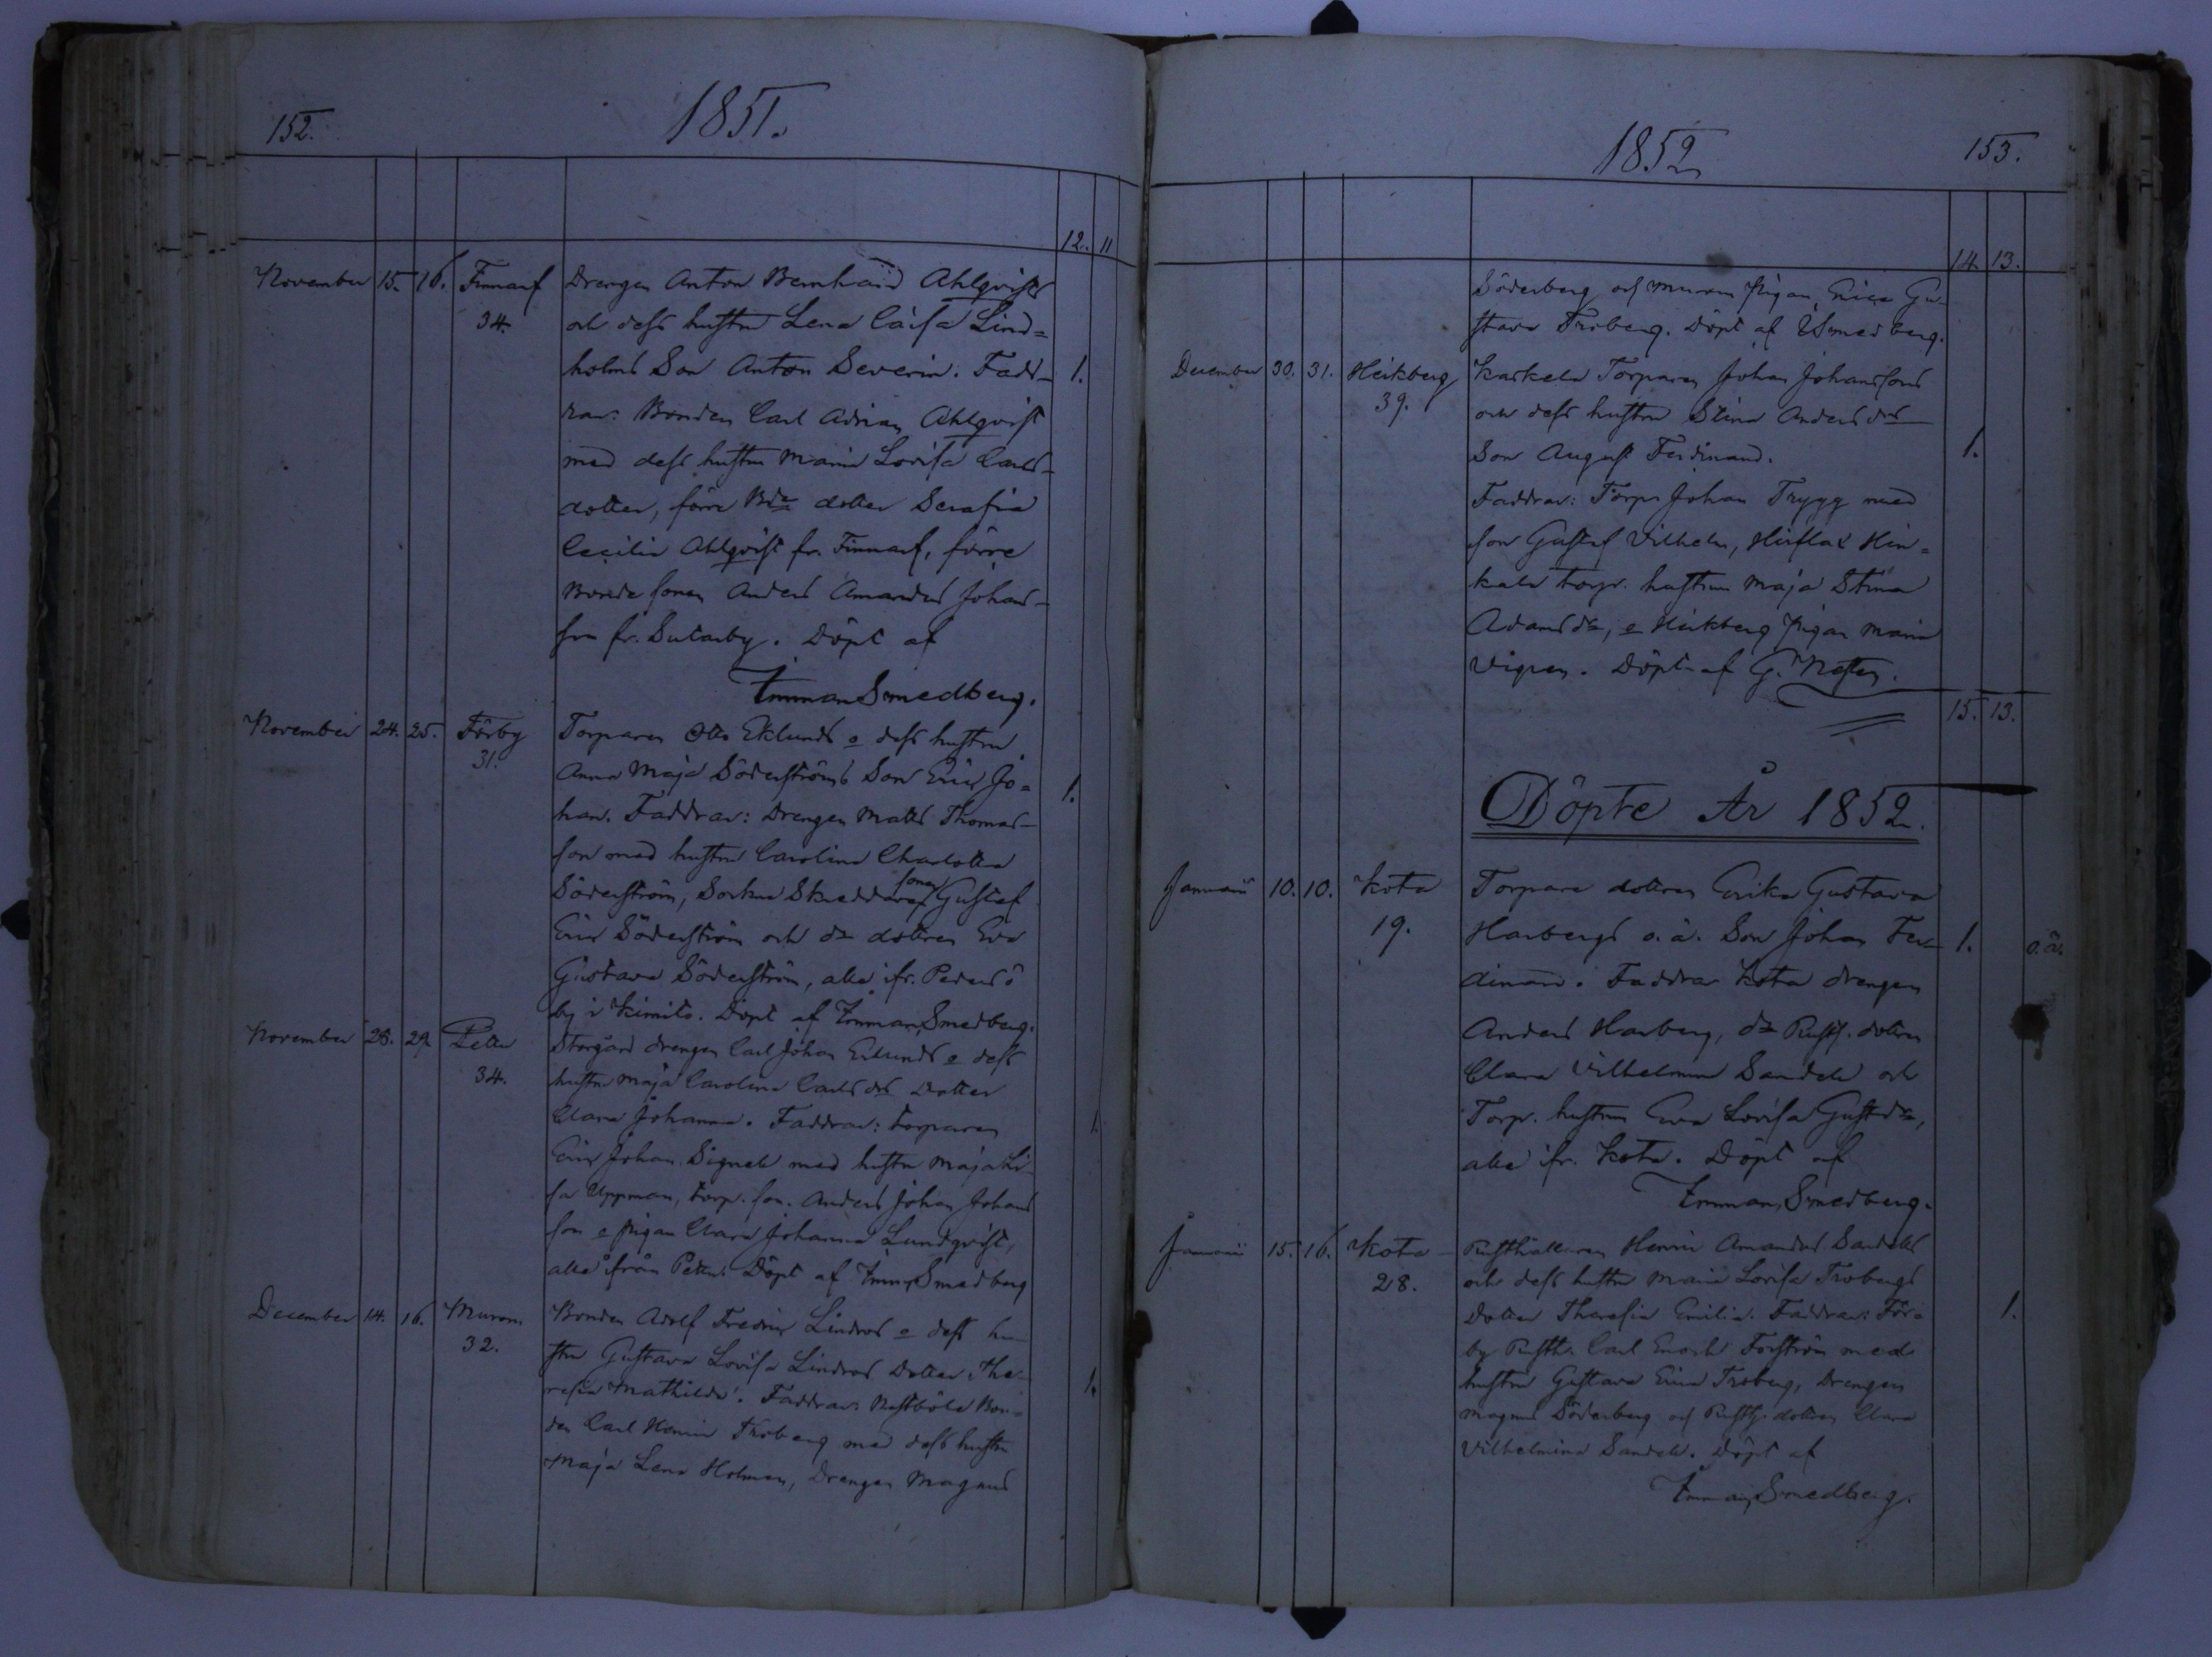 152.
1851.
12. 11
November 15. 16. Finnarf Drengen Anton Bernhard Ahlqvists
34. och dess hustru Lena Caisa Lind=
holms Son Anton Severin. Fadd- 1.
rar: Bonden Carl Adrian Ahlqvist
med dess hustru Maria Lovisa Carls-
dotter, förre Bde dotter Serafia
Cecilia Ahlqvist fr. Finnarf, förre
Bonde sonen Anders Amandus Johans-
son fr. Sutarby. Döpt af
Imman Smedberg.
November 24. 25. Förby Torparen Otto Eklunds o dess hustru
31. Anna Maja Söderströms Son Eric Jo= 1.
han. Faddrar: Drengen Matts Thomas-
son med hustru Carolina Charlotta
Söderström, Sockne Skreddare sonen Gustaf
Eric Söderström och do dottren Eva
Gustava Söderström, alla ifr. Pedersö
by i Kimito. Döpt af Imman Smedberg.
November 28. 29 Pettu Storgård drengen Carl Johan Eklunds o dess
34. hustru Maja Carolina Carlsdrs Dotter
Clara Johanna. Faddrar: torparen 1.
Eric Johan Signell med hustru Maja Li-
sa Uppman, torp. son. Anders Johan Johans
son o pigan Clara Johanna Lundqvist,
alla ifrån Pettu. Döpt af Imm. Smedberg
December 14. 16. Murom Bonden Adolf Fredric Lindros o dess hu-
32. stru Gustava Lovisa Lindros Dotter The-
resia Mathilda. Faddrar: Bonden 1.
Carl Henric Froberg med dess hustru
Maja Lena Holmen, Drengen Magnus
1852
153.
14. 13.
Söderberg och Murom Pigan Erica Gu-
stava Froberg. Döpt af Smedberg.
December 30. 31. Heikberg Karkela Torparen Johan Johanssons
39. och dess hustru Stina Andersdrs
Son August Ferdinand. 1.
Faddrar: Torpr Johan Trygg med
son Gustaf Vilhelm, Hin=
kala torpr. hustrun Maja Stina
Adamsdr, o Heikberg Pigan Maria
Vigren. Döpt af G.
15. 13.
Döpte År 1852.
Januarii 10. 10. Kota Torpare dottren Erika Gustava
19. Harbergs o. ä. Son Johan Fer- 1. o. ä.
dinand. Faddrar Kota drengen
Anders Harberg, do Rusth. dottren
Clara Vilhelmina Sandell och
Torpr. hustrun Eva Lovisa Gustdr,
alla ifr. Kota. Döpt af
Imman. Smedberg.
Januarii 15. 16. Kota Rusthållaren Henric Amandus Sandells
28. och dess hustru Maria Lovisa Frobergs
Dotter Theresia Emilia. Faddrar: För= 1.
by Rusth. Carl Enoch Forström med
hustru Gustava Erica Froberg, Drengen
Magnus Söderberg och Rusth. dottren Clara
Vilhelmina Sandell. Döpt af
Imman Smedberg.